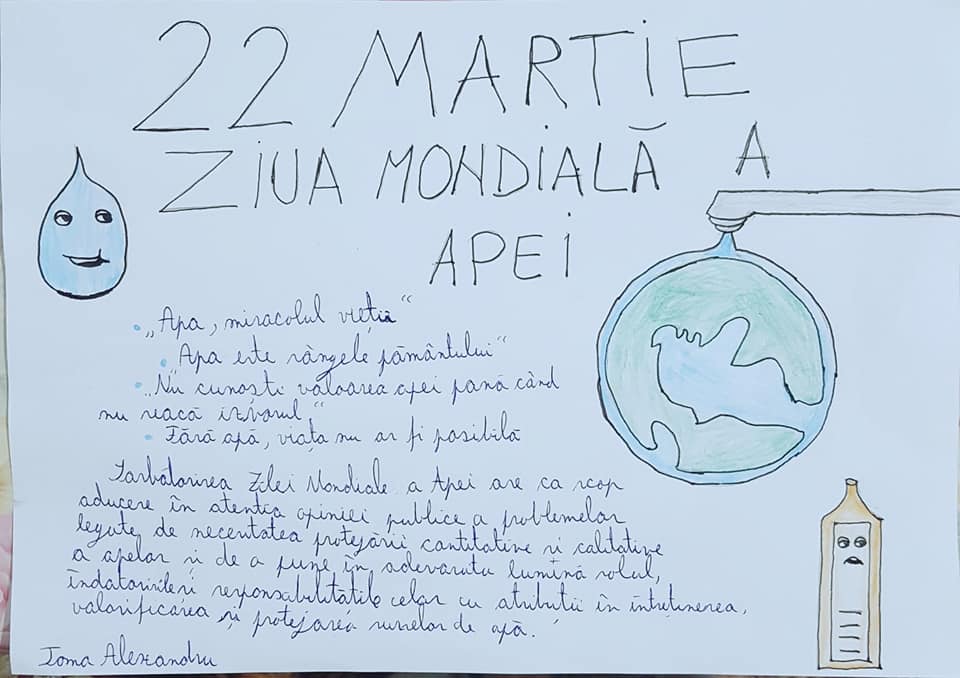 22 MARTIE
ZIUA MONDIALĂ A
APEI
• „Apa, miracolul vieții“
• „Apa este sângele pământului“
• „Nu cunoști valoarea apei până când
nu seacă izvorul“
• Fără apă, viața nu ar fi posibilă
Sarbătorirea Zilei Mondiale a Apei are ca scop
aducere în atentia opiniei publice a problemelor
legate de necesitatea protejării cantitative si calitative
a apelor si de a pune în adevarata lumină rolul,
îndatoririleri responsabilitățile celor cu atributii în întreținerea,
valorificarea și protejarea surselor de apă.
Toma Alexandru